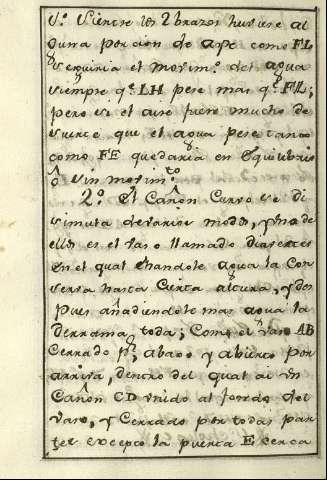 Sº. Si entre los 2 brazos huviere al
guna porcion de ayre como FL
seguiria el movimº. del agua
siempre qº. LH pese mas qº. FL;
pero si el aire fuere mucho de
suerte que el agua pese tanto
como FE quedaria en Equilibrio
ô sin movimto.
2º. El Cañon Curvo se di
simula de varios modos, y uno de
ellos es el vaso llamado diavetes
en el qual echandole agua la Con
serva hasta Cierta altura, y des
pues añadiendole mas agua la
derrama toda; Como el vaso AB
Cerrado pr. abaxo y abierto por
arriva, dentro del qual ai un
Cañon CD unido al fondo del
vaso, y Cerrado por todas par
tes excepto la puerta E cerca